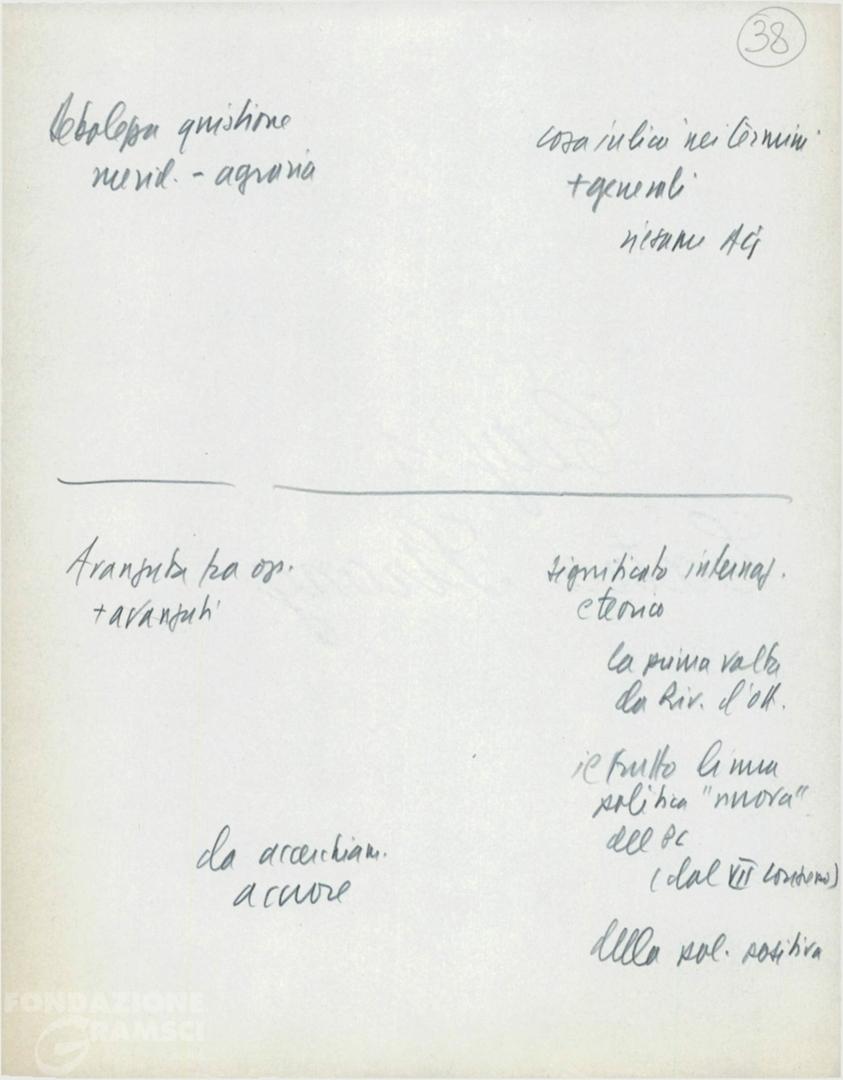 38
Debolezza quistione
merid. - agraria
cosa indica nei termini
+ generali
riesame AG
Avanguta tra op.
+ avanzati
significato internaz.
e teorico
la prima volta
da Riv. d'ott.
è frutto di una
politica "nuova"
del PC
(dal VII Congresso)
della pol. positiva
da accerchiam.
a cuore
FONDAZIONE
GRAMSCI